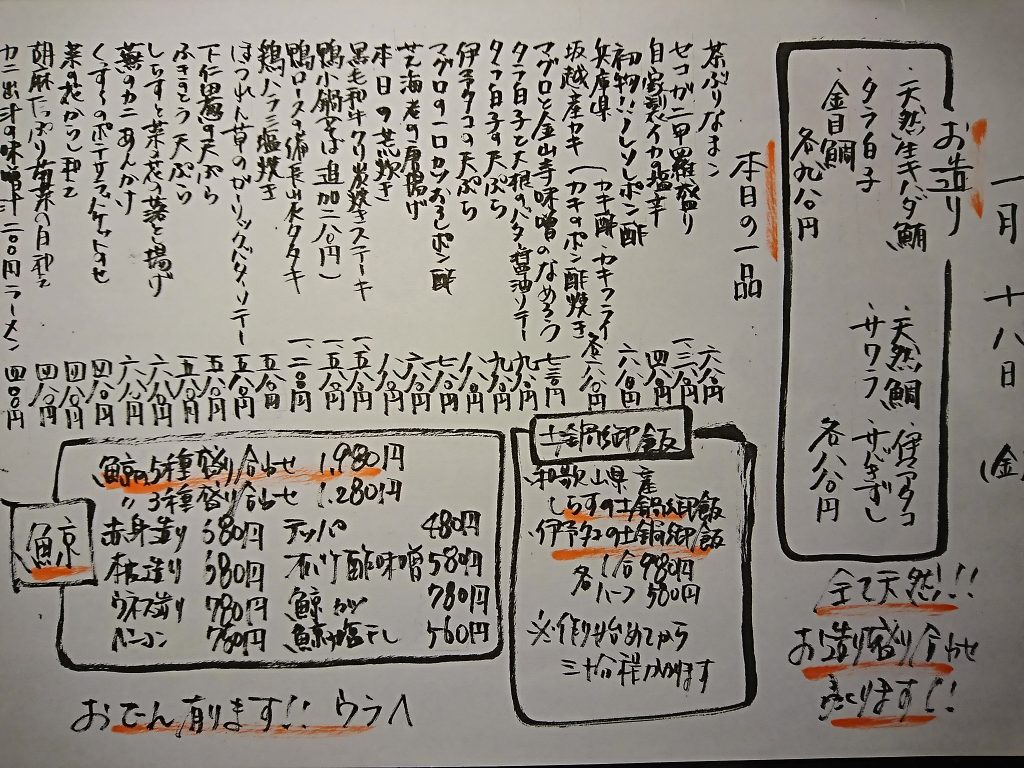 一月十八日(金)
お造り
・天然生キハダ鮪
・タラ白子
・金目鯛
各九八〇円
・天然鯛
・サワラ
・サゴきずし
各八八〇円
全て天然!!
お造り盛り合わせ
売ります!!
本日の一品
茶ぶりなまこ 六八〇円
セコガニ甲羅盛り 一、三八〇円
自家製イカ塩辛 四八〇円
初物!!
ポン酢 六八〇円
兵庫県
坂越産カキ(カキ酢・カキフライ
カキのポン酢焼き 各
マグロと金山寺味噌のなめろう 七三〇円
タラ白子と大根のバター醤油ソテー 九八〇円
タラ白子の天ぷら 九八〇円
伊予ダコの天ぷら 八八〇円
マグロの一口カツおろしポン酢 七八〇円
芝海老の唐揚げ 六八〇円
本日の煮炊き 八八〇円
黒毛和牛クリ炭焼きステーキ 一、五八〇円
鴨小鍋(そば追加二八〇円) 一、五八〇円
鴨ロースの備長山水タタキ 一、二〇〇円
鶏ハラミ塩焼き 五八〇円
ほうれん草のガーリックバターソテー 五八〇円
下仁田葱の天ぷら 五八〇円
ふきとう天ぷら 五八〇円
しらすと菜の花の落とし揚げ 六八〇円
蕪のカニあんかけ 六八〇円
くずし
ポテサラバケットのせ 四八〇円
菜の花からし和え 四八〇円
胡麻たっぷり菊菜の白和え 四八〇円
カニ出汁の味噌汁二〇〇円ラーメン 四〇〇円
土鍋御飯
和歌山県産
しらすの土鍋御飯
伊予ダコの土鍋御飯
各 1合 980円
ハーフ 580円
※作り始めてから
三十分程かかります
鯨
鯨の5種盛り合わせ 1,980円
〃 3種盛り合わせ 1,280円
赤身造り 580円
本皮造り 580円
ウネス造り 780円
ベーコン 780円
テッパ 480円
オバケ酢味噌 580円
鯨カツ 780円
鯨の塩干し 560円
おでん有ります!! ウラへ